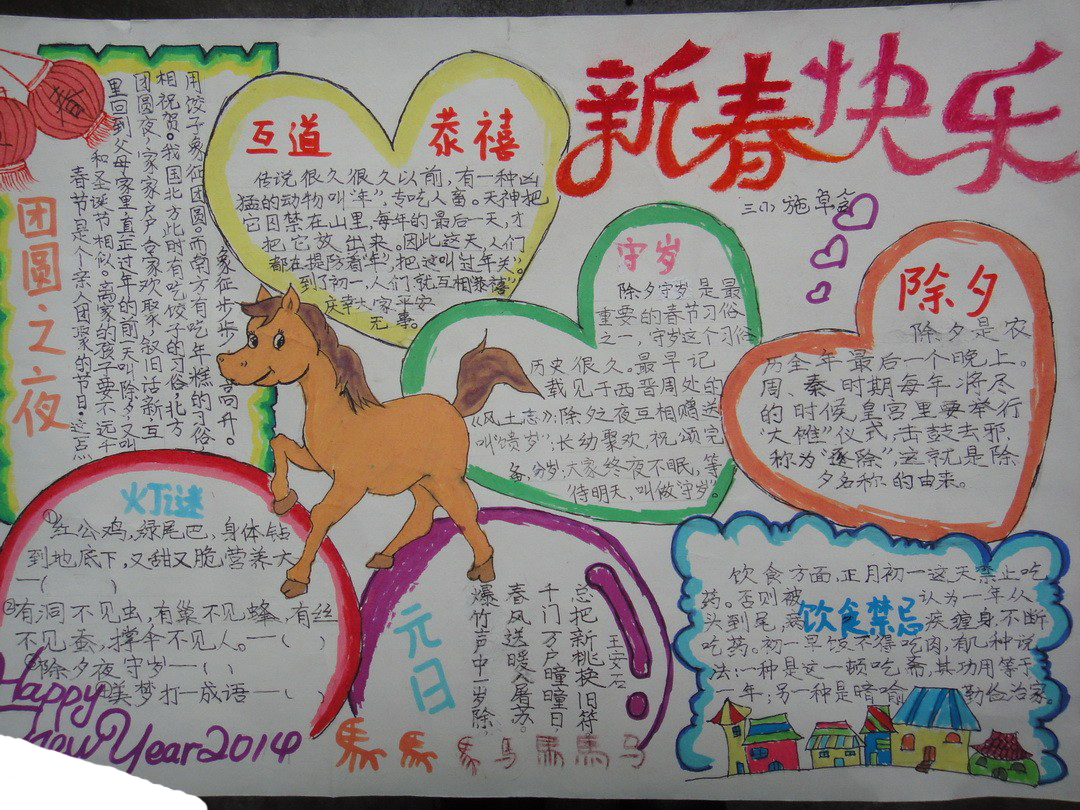 新春快乐
三(1) 施卓言
春
团圆之夜
春节是个亲人团聚的节日。这点
和圣诞节相似。离家的孩子要不远千
里回到父母家里。真正过年的前一天叫除夕,又叫
团圆夜,家家户户,合家欢聚,叙旧话新,互
相祝贺。我国北方此时有吃饺子的习俗,北方
用饺子象征团圆。而南方有吃年糕的习俗,
象征步步高升。
互道 恭禧
传说很久很久以前,有一种凶
猛的动物叫“年”,专吃人畜。天神把
它囚禁在山里,每年的最后一天,才
把它放出来。因此这天,人们
都在提防着“年”,把这叫过年关”。
到了初一,人们就互相恭禧”
庆幸大家平安
无事。
守岁
除夕守岁是最
重要的年俗习俗
之一,守岁这个习俗
历史很久。最早记
载见于西晋周处的
《风土志》:除夕之夜互相赠送
叫“馈岁”;长幼聚欢,祝颂完
备,分岁;大家终夜不眠,等
待明天,叫做“守岁”。
除夕
除夕是农
历全年最后一个晚上。
周、秦时期每年将尽
的时候,皇宫里要举行
“大傩”仪式,击鼓去邪,
称为“逐除”,这就是除
夕名称的由来。
灯谜
①红公鸡,绿尾巴,身体钻
到地底下,又甜又脆营养大
—( )
②有洞不见虫,有巢不见蜂,有丝
不见蚕,撑伞不见人。—( )
除夕夜守岁—( )
美梦打一成语—( )
Happy
New Year 2014
元日
王安石
爆竹声中一岁除,
春风送暖入屠苏。
千门万户曈曈日,
总把新桃换旧符
馬 马 馬 馬 马
饮食禁忌
饮食方面,正月初一这天禁止吃
药。否则被 认为一年从
头到尾, 疾缠身,不断
吃药。初一早饭不得吃肉,有几种说
法:一种是这一顿吃斋,其功用等于
一年;另一种是暗喻 勤俭治家